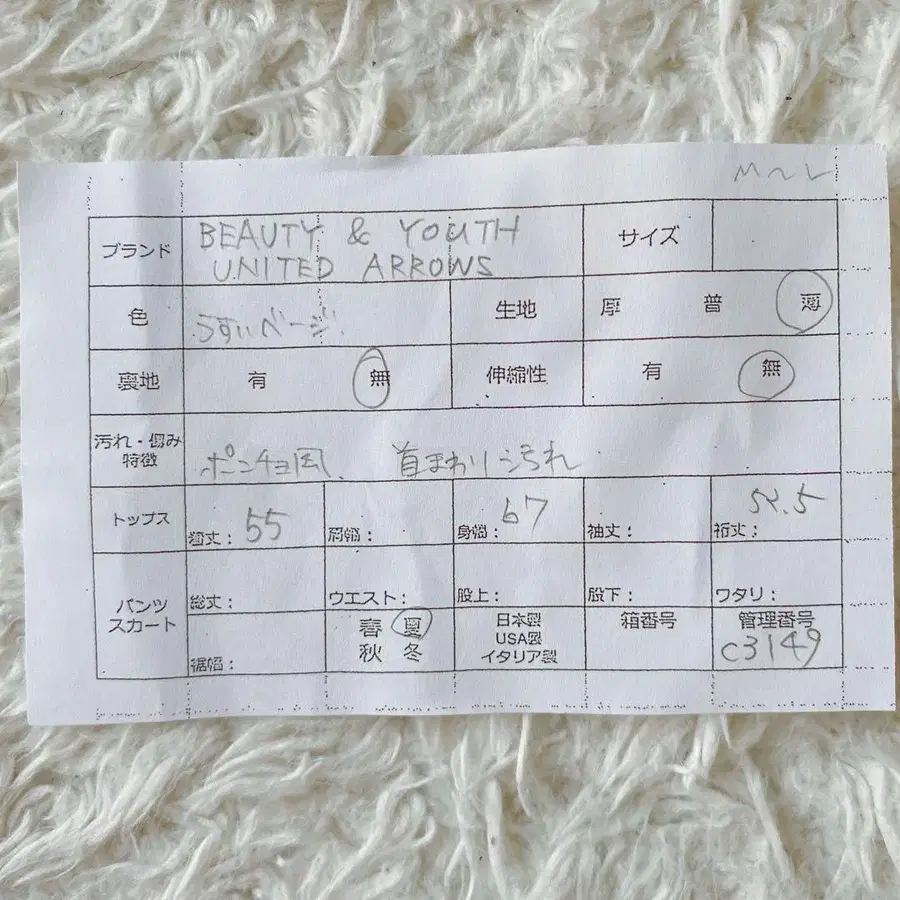 M〜L
ブランド BEAUTY & YOUTH サイズ
UNITED ARROWS
色 うすいベージ 生地 厚 普 薄
裏地 有 無 伸縮性 有 無
汚れ・傷み
特徴 ポンチョ風、 首まわり汚れ
トップス 着丈： 55 肩幅： 身幅： 67 袖丈： 裄丈：
パンツ
スカート 総丈： ウエスト： 股上： 股下： ワタリ：
裾幅： 春 夏 日本製 箱番号 管理番号
秋 冬 USA製 C3149
イタリア製